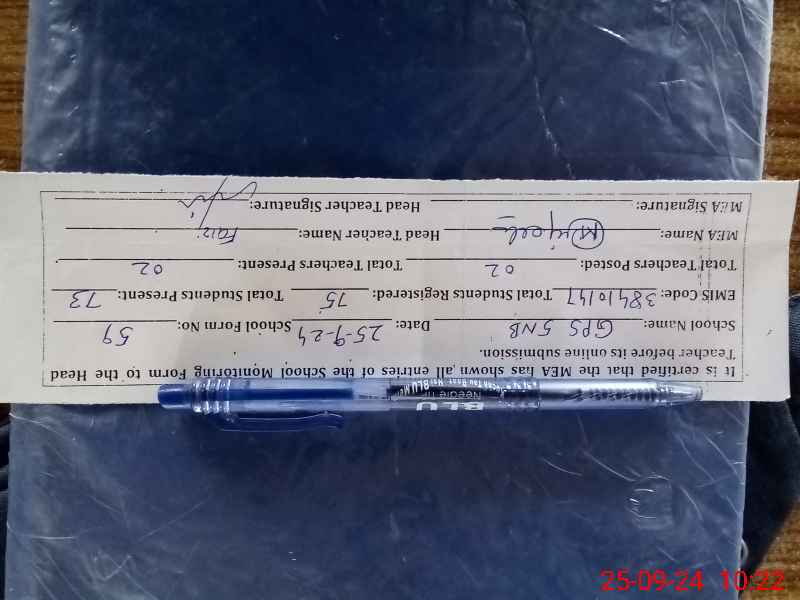 It is certified that the MEA has shown all entries of the School Monitoring Form to the Head
Teacher before its online submission.
School Name: GPS 5NB Date: 25-9-24 School Form No: 59
EMIS Code: 38410147 Total Students Registered: 75 Total Students Present: 73
Total Teachers Posted: 02 Total Teachers Present: 02
MEA Name: Head Teacher Name: Faiz
MEA Signature: Head Teacher Signature:
BLU
Needle Tip
25-09-24 10:22